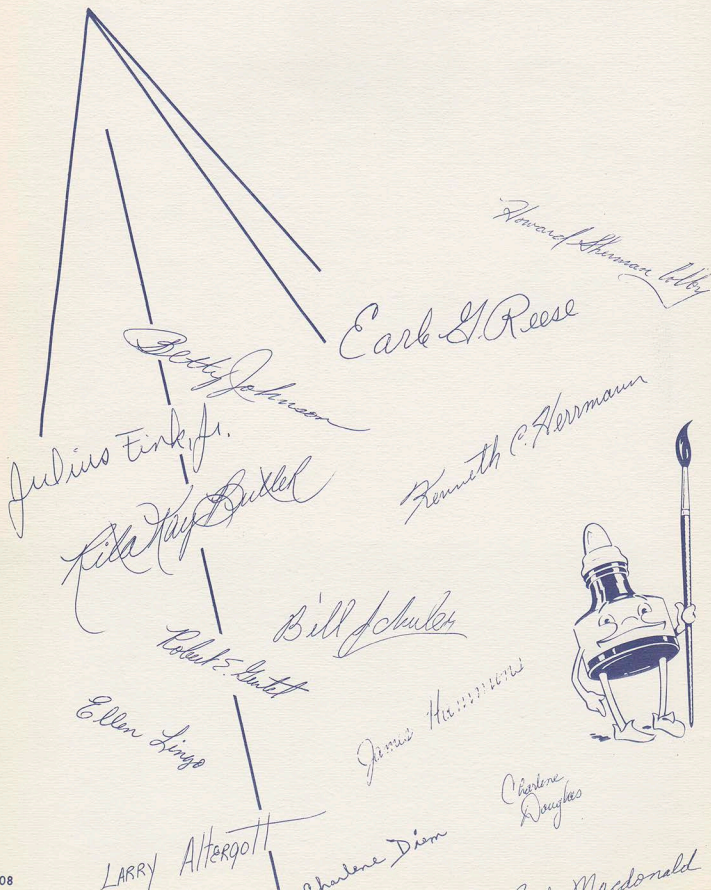 Howard Sherman
Earle G. Reese
Betty Johnson
Kenneth C. Herrmann
Julius Fink, Jr.
Rita Kay Butler
Bill Schuler
Robert E. Gentet
James Hammons
Ellen Lingo
Charlene
Douglas
Larry Altergott
Charlene Diem
Macdonald
08